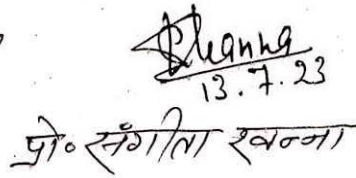 Skanna
13.7.23
प्रो॰ संगीता खन्ना